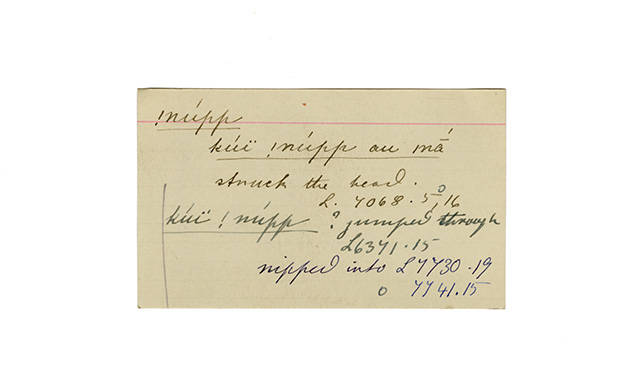 !núpp
kúï !núpp au mā́
struck the head.
L. 4068. 5, 16
o
kúï !núpp ? jumped through
L6371.15
nipped into L7730.19
o 7741.15